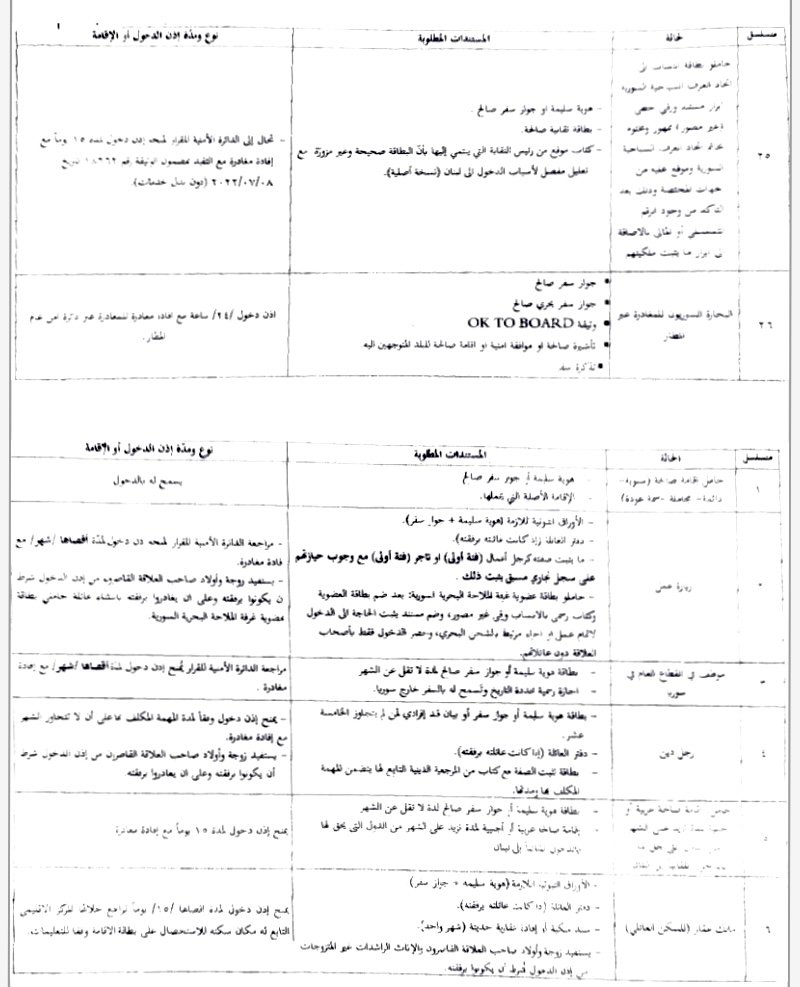 متسلسل
الحالة
المستندات المطلوبة
نوع ومدة إذن الدخول أو الإقامة
٢٥
حاملو بطاقة انتساب الى
اتحاد الغرف السياحية السورية
ابراز مستند ورقي
(غير مصور) ممهور ومختوم
اتحاد الغرف السياحية
السورية وموقع عليه من
من وجود الرقم
أو بالاضافة
الى ابراز ما يثبت ملكيتهم
- هوية سليمة او جواز سفر صالح.
- بطاقة نقابية صالحة.
- كتاب موقع من رئيس النقابة التي ينتمي إليها بأن البطاقة صحيحة وغير مزورة مع
تعليل مفصل لأسباب الدخول الى لبنان (نسخة أصلية).
- تحال إلى الدائرة الأمنية للقرار لمنحه إذن دخول لمدة ١٥ يوماً مع
إفادة مغادرة مع التقيد بمضمون الوثيقة رقم تاريخ
٢٠٢٢/٠٧/٠٨ (دون بدل خدمات).
٢٦
البحارة السوريون للمغادرة عبر
المطار
• جواز سفر صالح
• جواز سفر بحري صالح
• وثيقة OK TO BOARD
• تأشيرة صالحة او موافقة امنية او اقامة صالحة للبلد المتوجهين اليه
• تذكرة سفر
اذن دخول /٢٤/ ساعة مع افادة مغادرة للمغادرة عبر دائرة امن عام
المطار.
متسلسل
الحالة
المستندات المطلوبة
نوع ومدة إذن الدخول أو الإقامة
١
حامل إقامة صالحة (سنوية-
دائمة- مجاملة -سمة عودة)
- هوية سليمة أو جواز سفر صالح
- الإقامة الأصلية التي يحملها.
يسمح له بالدخول
زيارة عمل
- الأوراق الثبوتية اللازمة (هوية سليمة + جواز سفر).
- دفتر العائلة (إذا كانت عائلته برفقته).
- ما يثبت صفته كرجل أعمال (فئة أولى) او تاجر (فئة أولى) مع وجوب حيازتهم
على سجل تجاري مسبق يثبت ذلك.
- حاملو بطاقة عضوية غرفة الملاحة البحرية السورية: بعد ضم بطاقة العضوية
وكتاب رسمي بالانتساب ورقي غير مصور، وضم مستند يثبت الحاجة الى الدخول
لاتمام عمل او اجراء مرتبط بالشحن البحري، وحصر الدخول فقط بأصحاب
العلاقة دون عائلاتهم.
- مراجعة الدائرة الأمنية للقرار لمنحه إذن دخول لمدة أقصاها /شهر/ مع
إفادة مغادرة.
- يستفيد زوجة وأولاد صاحب العلاقة القاصرون من إذن الدخول شرط
أن يكونوا برفقته وعلى ان يغادروا برفقته باستثناء عائلة حاملي بطاقة
عضوية غرفة الملاحة البحرية السورية.
موظف في القطاع العام في
سوريا
- بطاقة هوية سليمة أو جواز سفر صالح لمدة لا تقل عن الشهر
- اجازة رسمية محددة التاريخ وتسمح له بالسفر خارج سوريا.
مراجعة الدائرة الأمنية للقرار يمنح إذن دخول لمدة أقصاها /شهر/ مع إفادة
مغادرة.
٤
رجل دين
- بطاقة هوية سليمة أو جواز سفر أو بيان قيد إفرادي لمن لم يتجاوز الخامسة
عشر.
- دفتر العائلة (إذا كانت عائلته برفقته).
- بطاقة تثبت الصفة مع كتاب من المرجعية الدينية التابع لها يتضمن المهمة
المكلف بها ومدتها.
- يمنح إذن دخول وفقاً لمدة المهمة المكلف بها على أن لا تتجاوز الشهر
مع إفادة مغادرة.
- يستفيد زوجة وأولاد صاحب العلاقة القاصرون من إذن الدخول شرط
أن يكونوا برفقته وعلى ان يغادروا برفقته
حامل إقامة صالحة عربية أو
- بطاقة هوية سليمة أو جواز سفر صالح لمدة لا تقل عن الشهر
- إقامة صالحة عربية أو أجنبية لمدة تزيد على الشهر من الدول التي يحق لها
بالدخول إلى لبنان
يمنح إذن دخول لمدة ١٥ يوماً مع إفادة مغادرة
٦
مالك عقار (للسكن العائلي)
- الأوراق الثبوتية اللازمة (هوية سليمة + جواز سفر)
- دفتر العائلة (إذا كانت عائلته برفقته).
- سند ملكية أو إفادة عقارية حديثة (شهر واحد).
- يستفيد زوجة وأولاد صاحب العلاقة القاصرون والإناث الراشدات غير المتزوجات
من إذن الدخول شرط أن يكونوا برفقته.
يمنح إذن دخول لمدة اقصاها /١٥/ يوماً يراجع خلالها المركز الاقليمي
التابع له مكان سكنه للاستحصال على بطاقة الاقامة وفقا للتعليمات.